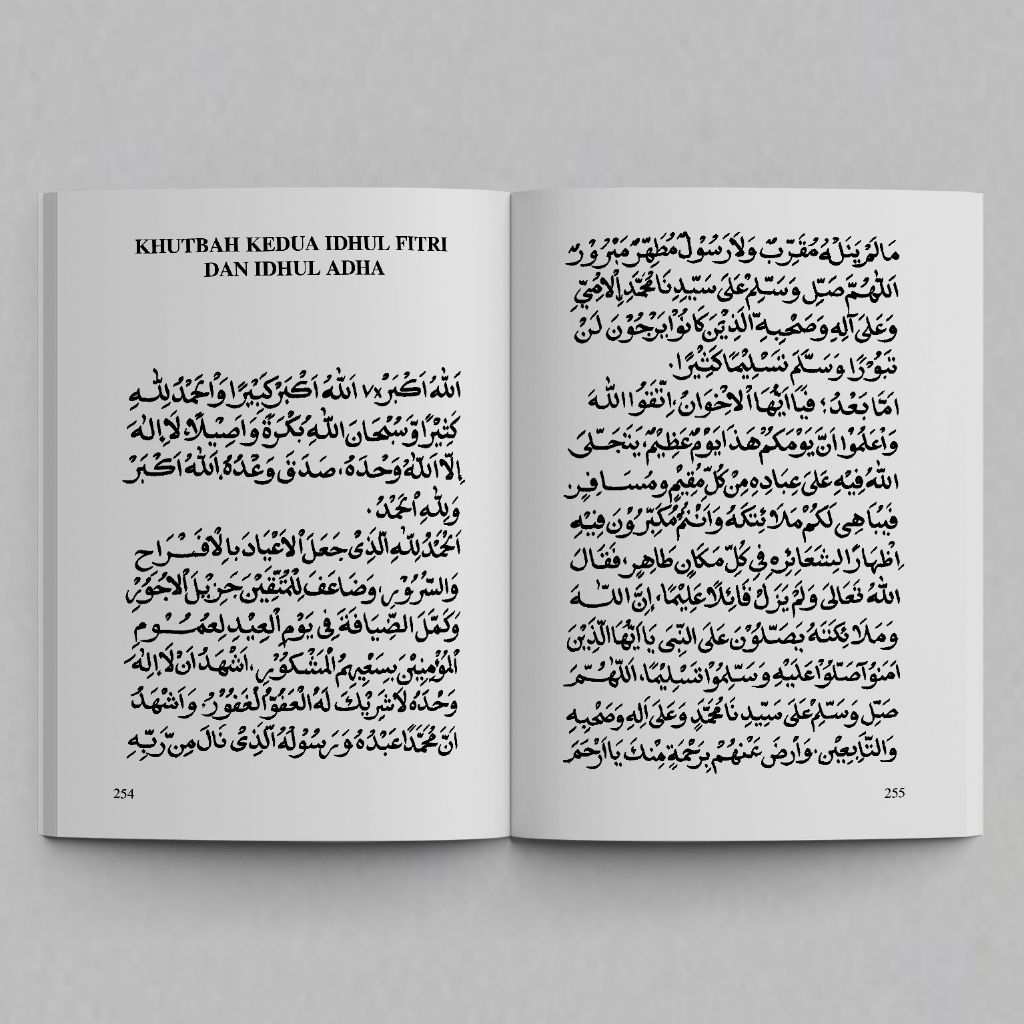 KHUTBAH KEDUA IDHUL FITRI
DAN IDHUL ADHA
اَللهُ اَكْبَرْ ٧x اَللهُ اَكْبَرْ كَبِيْرًا وَاْلحَمْدُ لِلّٰهِ
كَثِيْرًا وَّسُبْحَانَ اللهِ بُكْرَةً وَاَصِيْلًا، لَااِلٰهَ
اِلَّا اللهُ وَحْدَهُ، صَدَقَ وَعْدُهُ، اَللهُ اَكْبَرْ
وَلِلّٰهِ اْلحَمْدُ.
اَلْحَمْدُ لِلّٰهِ الَّذِىْ جَعَلَ اْلاَعْيَادَ بِالْاَفْرَاحِ
وَالسُّرُوْرِ، وَضَاعَفَ لِلْمُتَّقِيْنَ جَزِيْلَ اْلاُجُوْرِ
وَكَمَّلَ الضِّيَافَةَ فِى يَوْمِ الْعِيْدِ لِعُمُوْمِ
اْلمُؤْمِنِيْنَ بِسَعْيِهِمُ اْلمَشْكُوْرِ، اَشْهَدُ اَنْ لَااِلٰهَ
وَحْدَهُ لَاشَرِيْكَ لَهُ الْعَفُوُّ الْغَفُوْرُ، وَاَشْهَدُ
اَنَّ مُحَمَّدًا عَبْدُهُ وَرَسُوْلُهُ الَّذِىْ نَالَ مِنْ رَّبِّهِ
254
مَالَمْ يَنَلْهُ مُقَرَّبٌ وَلَارَسُوْلٌ مُطَهَّرٌ مَبْرُوْرٌ
اَللّٰهُمَّ صَلِّ وَسَلِّمْ عَلَى سَيِّدِنَا مُحَمَّدٍ اِلْاُمِّيِّ
وَعَلَى آلِهِ وَصَحْبِهِ الَّذِيْنَ كَانُوْا يَرْجُوْنَ لَنْ
تَبُوْرًا وَسَلَّمَ تَسْلِيْمًا كَثِيْرًا.
اَمَّا بَعْدُ؛ فَيَااَيُّهَا اْلاِخْوَانُ، اِتَّقُوا اللهَ
وَاعْلَمُوْا اَنَّ يَوْمَكُمْ هَذَا يَوْمٌ عَظِيْمٌ، يَتَجَلَّى
اللهُ فِيْهِ عَلَى عِبَادِهِ مِنْ كُلِّ مُقِيْمٍ وَمُسَافِرٍ.
فَيُبَاهِى لَكُمْ مَلَائِكَتَهُ وَاَنْتُمْ مُكَبِّرُوْنَ فِيْهِ
اِظْهَارًا لِشَعَائِرِهِ فِى كُلِّ مَكَانٍ طَاهِرٍ، فَقَالَ
اللهُ تَعَالَى وَلَمْ يَزَلْ قَائِلًا عَلِيْمًا، اِنَّ اللّٰهَ
وَمَلَائِكَتَهُ يُصَلُّوْنَ عَلَى النَّبِى يَااَيُّهَا الَّذِيْنَ
امَنُوْا صَلُّوْا عَلَيْهِ وَسَلِّمُوْا تَسْلِيْمًا، اَللّٰهُمَّ
صَلِّ وَسَلِّمْ عَلَى سَيِّدِنَا مُحَمَّدٍ وَعَلَى آلِهِ وَصَحْبِهِ
وَالتَّابِعِيْنَ، وَارْضَ عَنْهُمْ بِرَحْمَةٍ مِنْكَ يَااَرْحَمَ
255